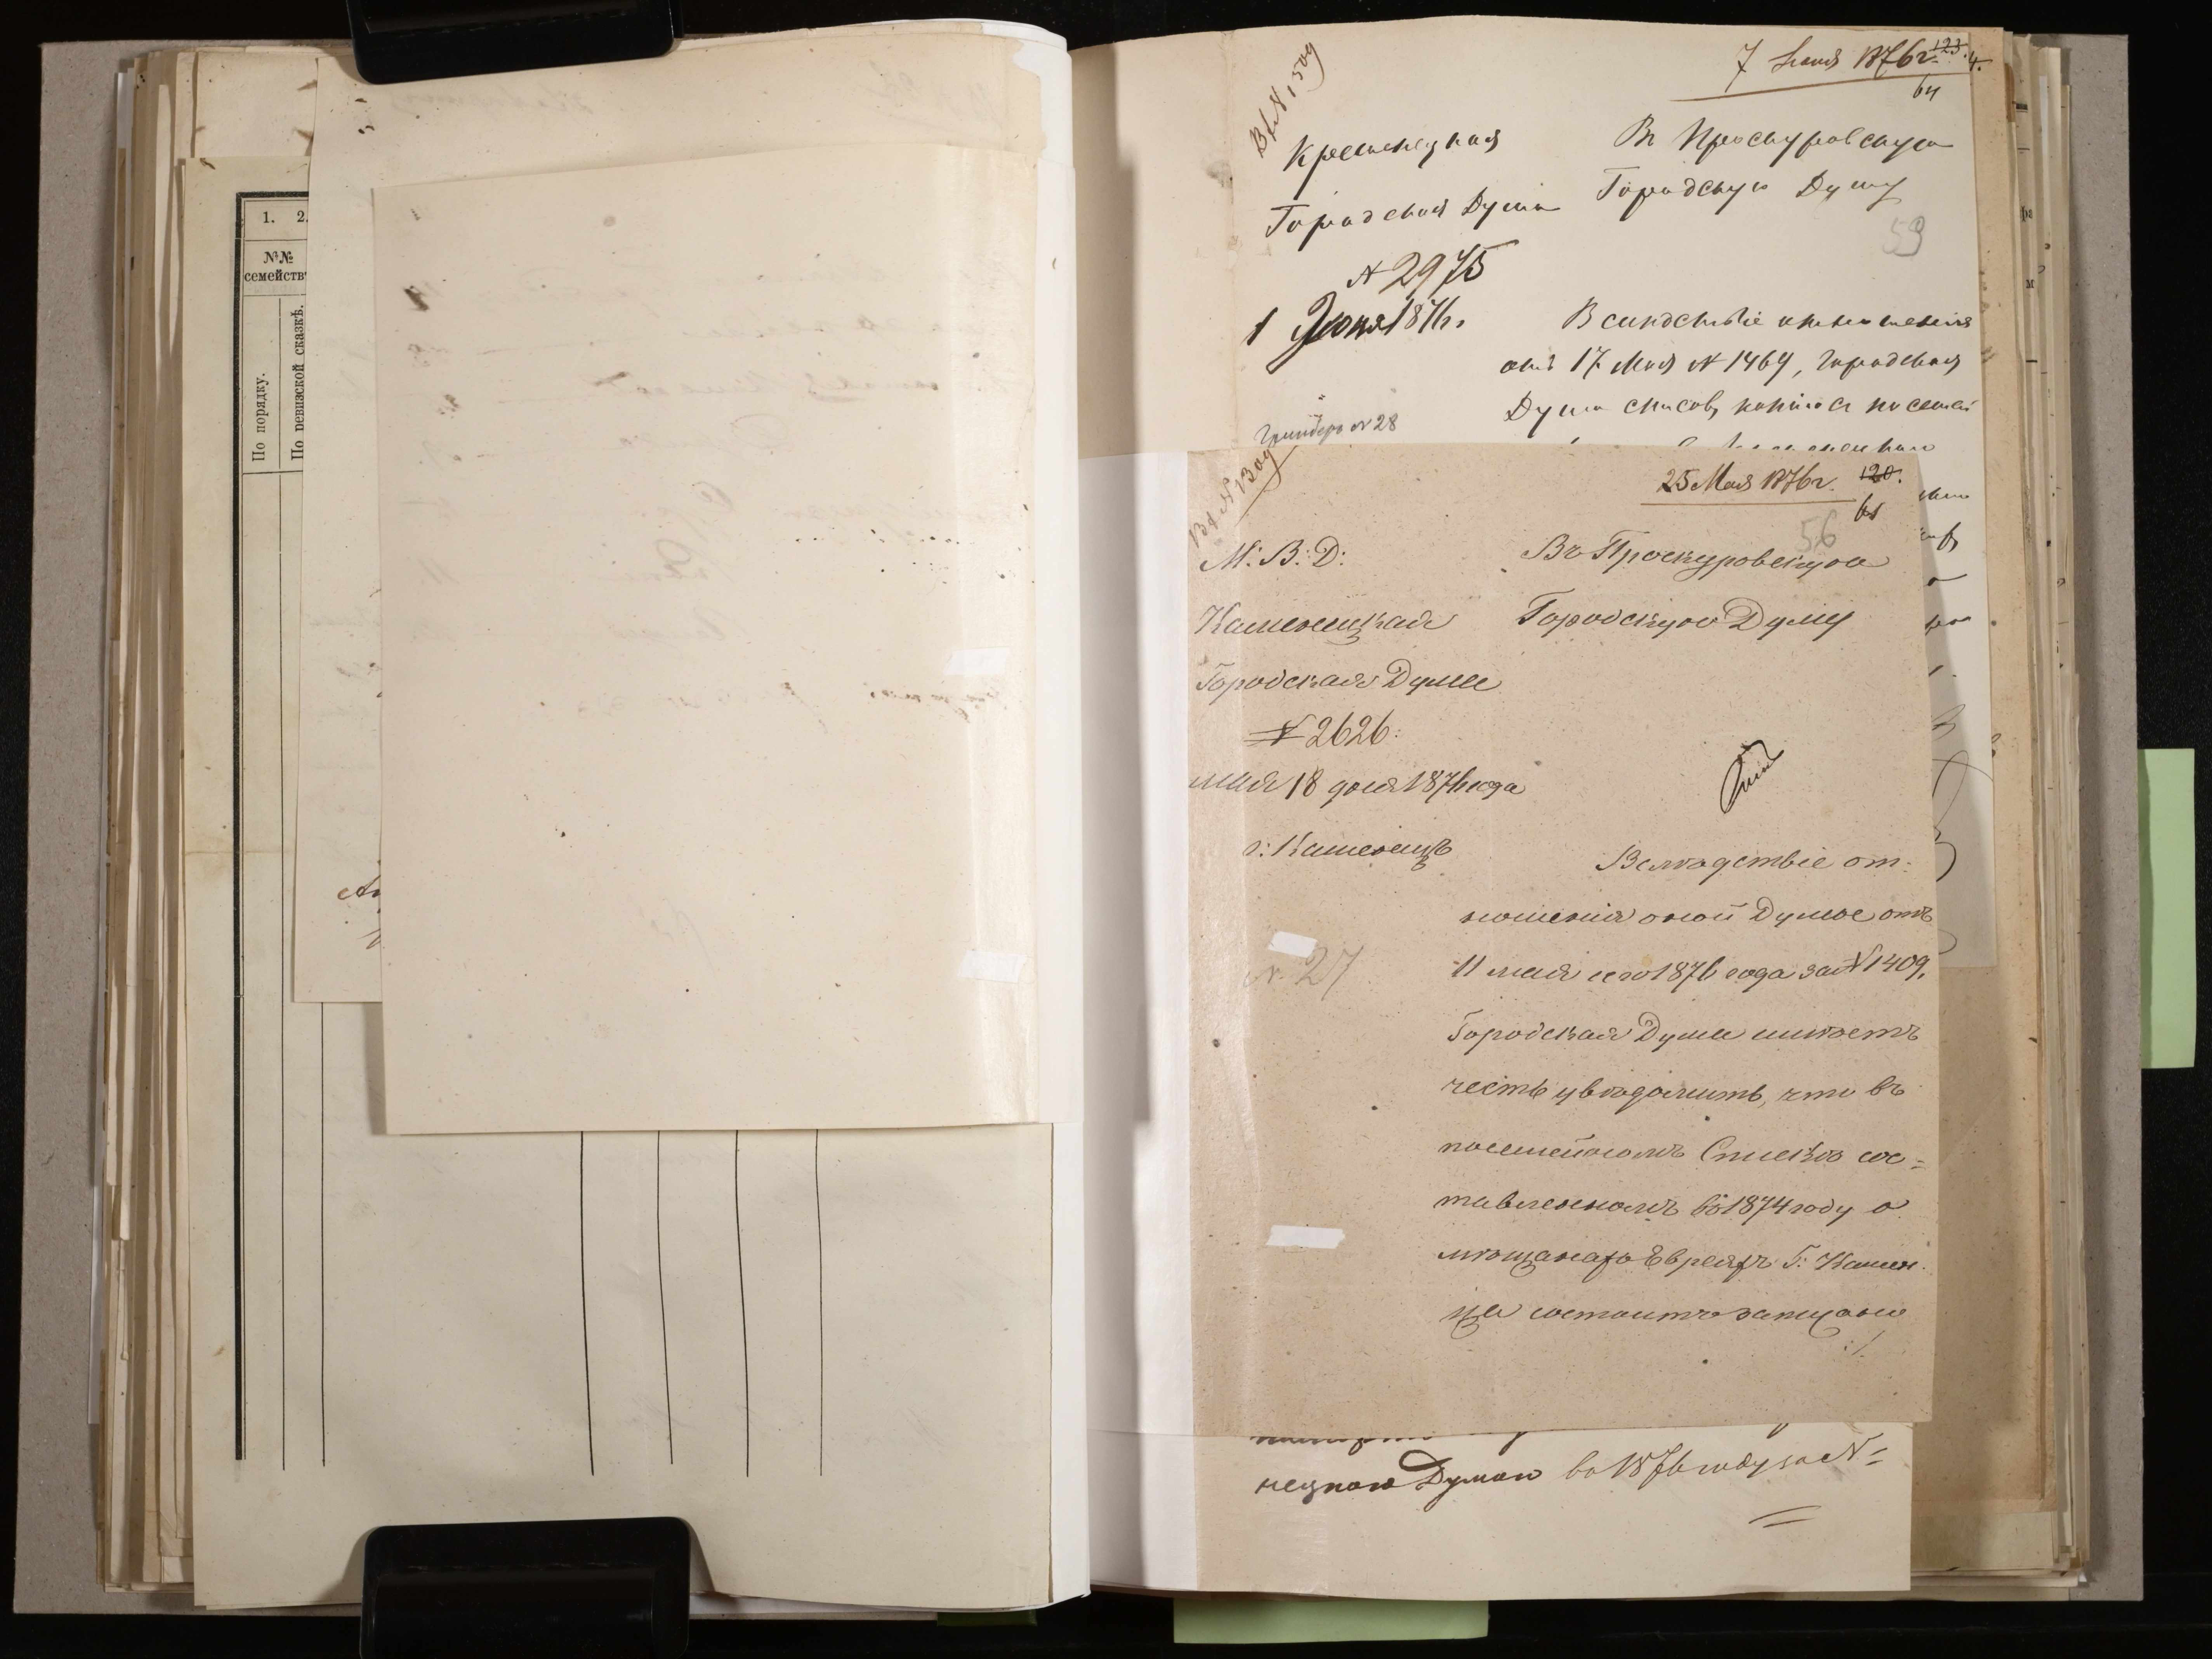 1. 2.
№№
семействъ
По порядку.
По ревизской сказкѣ.
7 Іюня 1876 г. 123.
64
Вх № 1509
Кременецкая
Городская Дума
№ 2975
1 Іюня 1876 г.
№ 28
Въ Проскуровскую
Городскую Думу
59
Вслѣдствіе отношенія
отъ 17 Мая № 1464, Городская
Дума
25 Мая 1876 г. 120.
61
56
Вх № 1309
М: В: Д:
Каменецкая
Городская Дума
№ 2626.
мая 18 дня 1876 года
г: Каменецъ
№ 27
Въ Проскуровскую
Городскую Думу
Вслѣдствіе от-
ношенія оной Думы отъ
11 мая сего 1876 года за № 1409,
Городская Дума имѣетъ
честь увѣдомить, что въ
посемейномъ Спискѣ сос=
тавленномъ въ 1874 году о
мѣщанахъ Евреяхъ Г: Камен-
ца состоитъ записано
./.
нецкою Думою въ 1876 году за №=